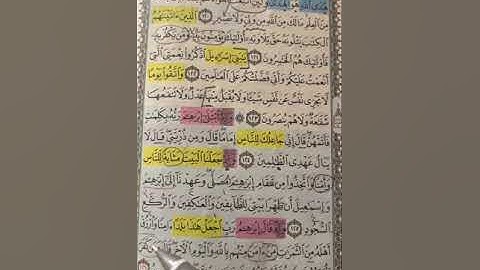 هُدَى ٱللَّهِ هُوَ ٱلْهُدَىٰ
مِنَ ٱلْعِلْمِ مَا لَكَ مِنَ ٱللَّهِ مِن وَلِىٍّ وَلَا نَصِيرٍ ١٢٠ ٱلَّذِينَ ءَاتَيْنَٰهُمُ
ٱلْكِتَٰبَ يَتْلُونَهُۥ حَقَّ تِلَاوَتِهِۦٓ أُو۟لَٰٓئِكَ يُؤْمِنُونَ بِهِۦ وَمَن يَكْفُرْ بِهِۦ
فَأُو۟لَٰٓئِكَ هُمُ ٱلْخَٰسِرُونَ ١٢١ يَٰبَنِىٓ إِسْرَٰٓءِيلَ ٱذْكُرُوا۟ نِعْمَتِىَ ٱلَّتِىٓ
أَنْعَمْتُ عَلَيْكُمْ وَأَنِّى فَضَّلْتُكُمْ عَلَى ٱلْعَٰلَمِينَ ١٢٢ وَٱتَّقُوا۟ يَوْمًا
لَّا تَجْزِى نَفْسٌ عَن نَّفْسٍ شَيْـًٔا وَلَا يُقْبَلُ مِنْهَا عَدْلٌ وَلَا تَنفَعُهَا
شَفَٰعَةٌ وَلَا هُمْ يُنصَرُونَ ١٢٣ ۞ وَإِذِ ٱبْتَلَىٰٓ إِبْرَٰهِـۧمَ رَبُّهُۥ بِكَلِمَٰتٍ
فَأَتَمَّهُنَّ قَالَ إِنِّى جَاعِلُكَ لِلنَّاسِ إِمَامًا قَالَ وَمِن ذُرِّيَّتِى قَالَ لَا
يَنَالُ عَهْدِى ٱلظَّٰلِمِينَ ١٢٤ وَإِذْ جَعَلْنَا ٱلْبَيْتَ مَثَابَةً لِّلنَّاسِ
وَأَمْنًا وَٱتَّخِذُوا۟ مِن مَّقَامِ إِبْرَٰهِـۧمَ مُصَلًّى وَعَهِدْنَآ إِلَىٰٓ إِبْرَٰهِـۧمَ
وَإِسْمَٰعِيلَ أَن طَهِّرَا بَيْتِىَ لِلطَّآئِفِينَ وَٱلْعَٰكِفِينَ وَٱلرُّكَّعِ
ٱلسُّجُودِ ١٢٥ وَإِذْ قَالَ إِبْرَٰهِـۧمُ رَبِّ ٱجْعَلْ هَٰذَا بَلَدًا ءَامِنًا وَٱرْزُقْ
أَهْلَهُۥ مِنَ ٱلثَّمَرَٰتِ مَنْ ءَامَنَ مِنْهُم بِٱللَّهِ وَٱلْيَوْمِ ٱلْءَاخِرِ قَالَ وَمَن كَفَرَ